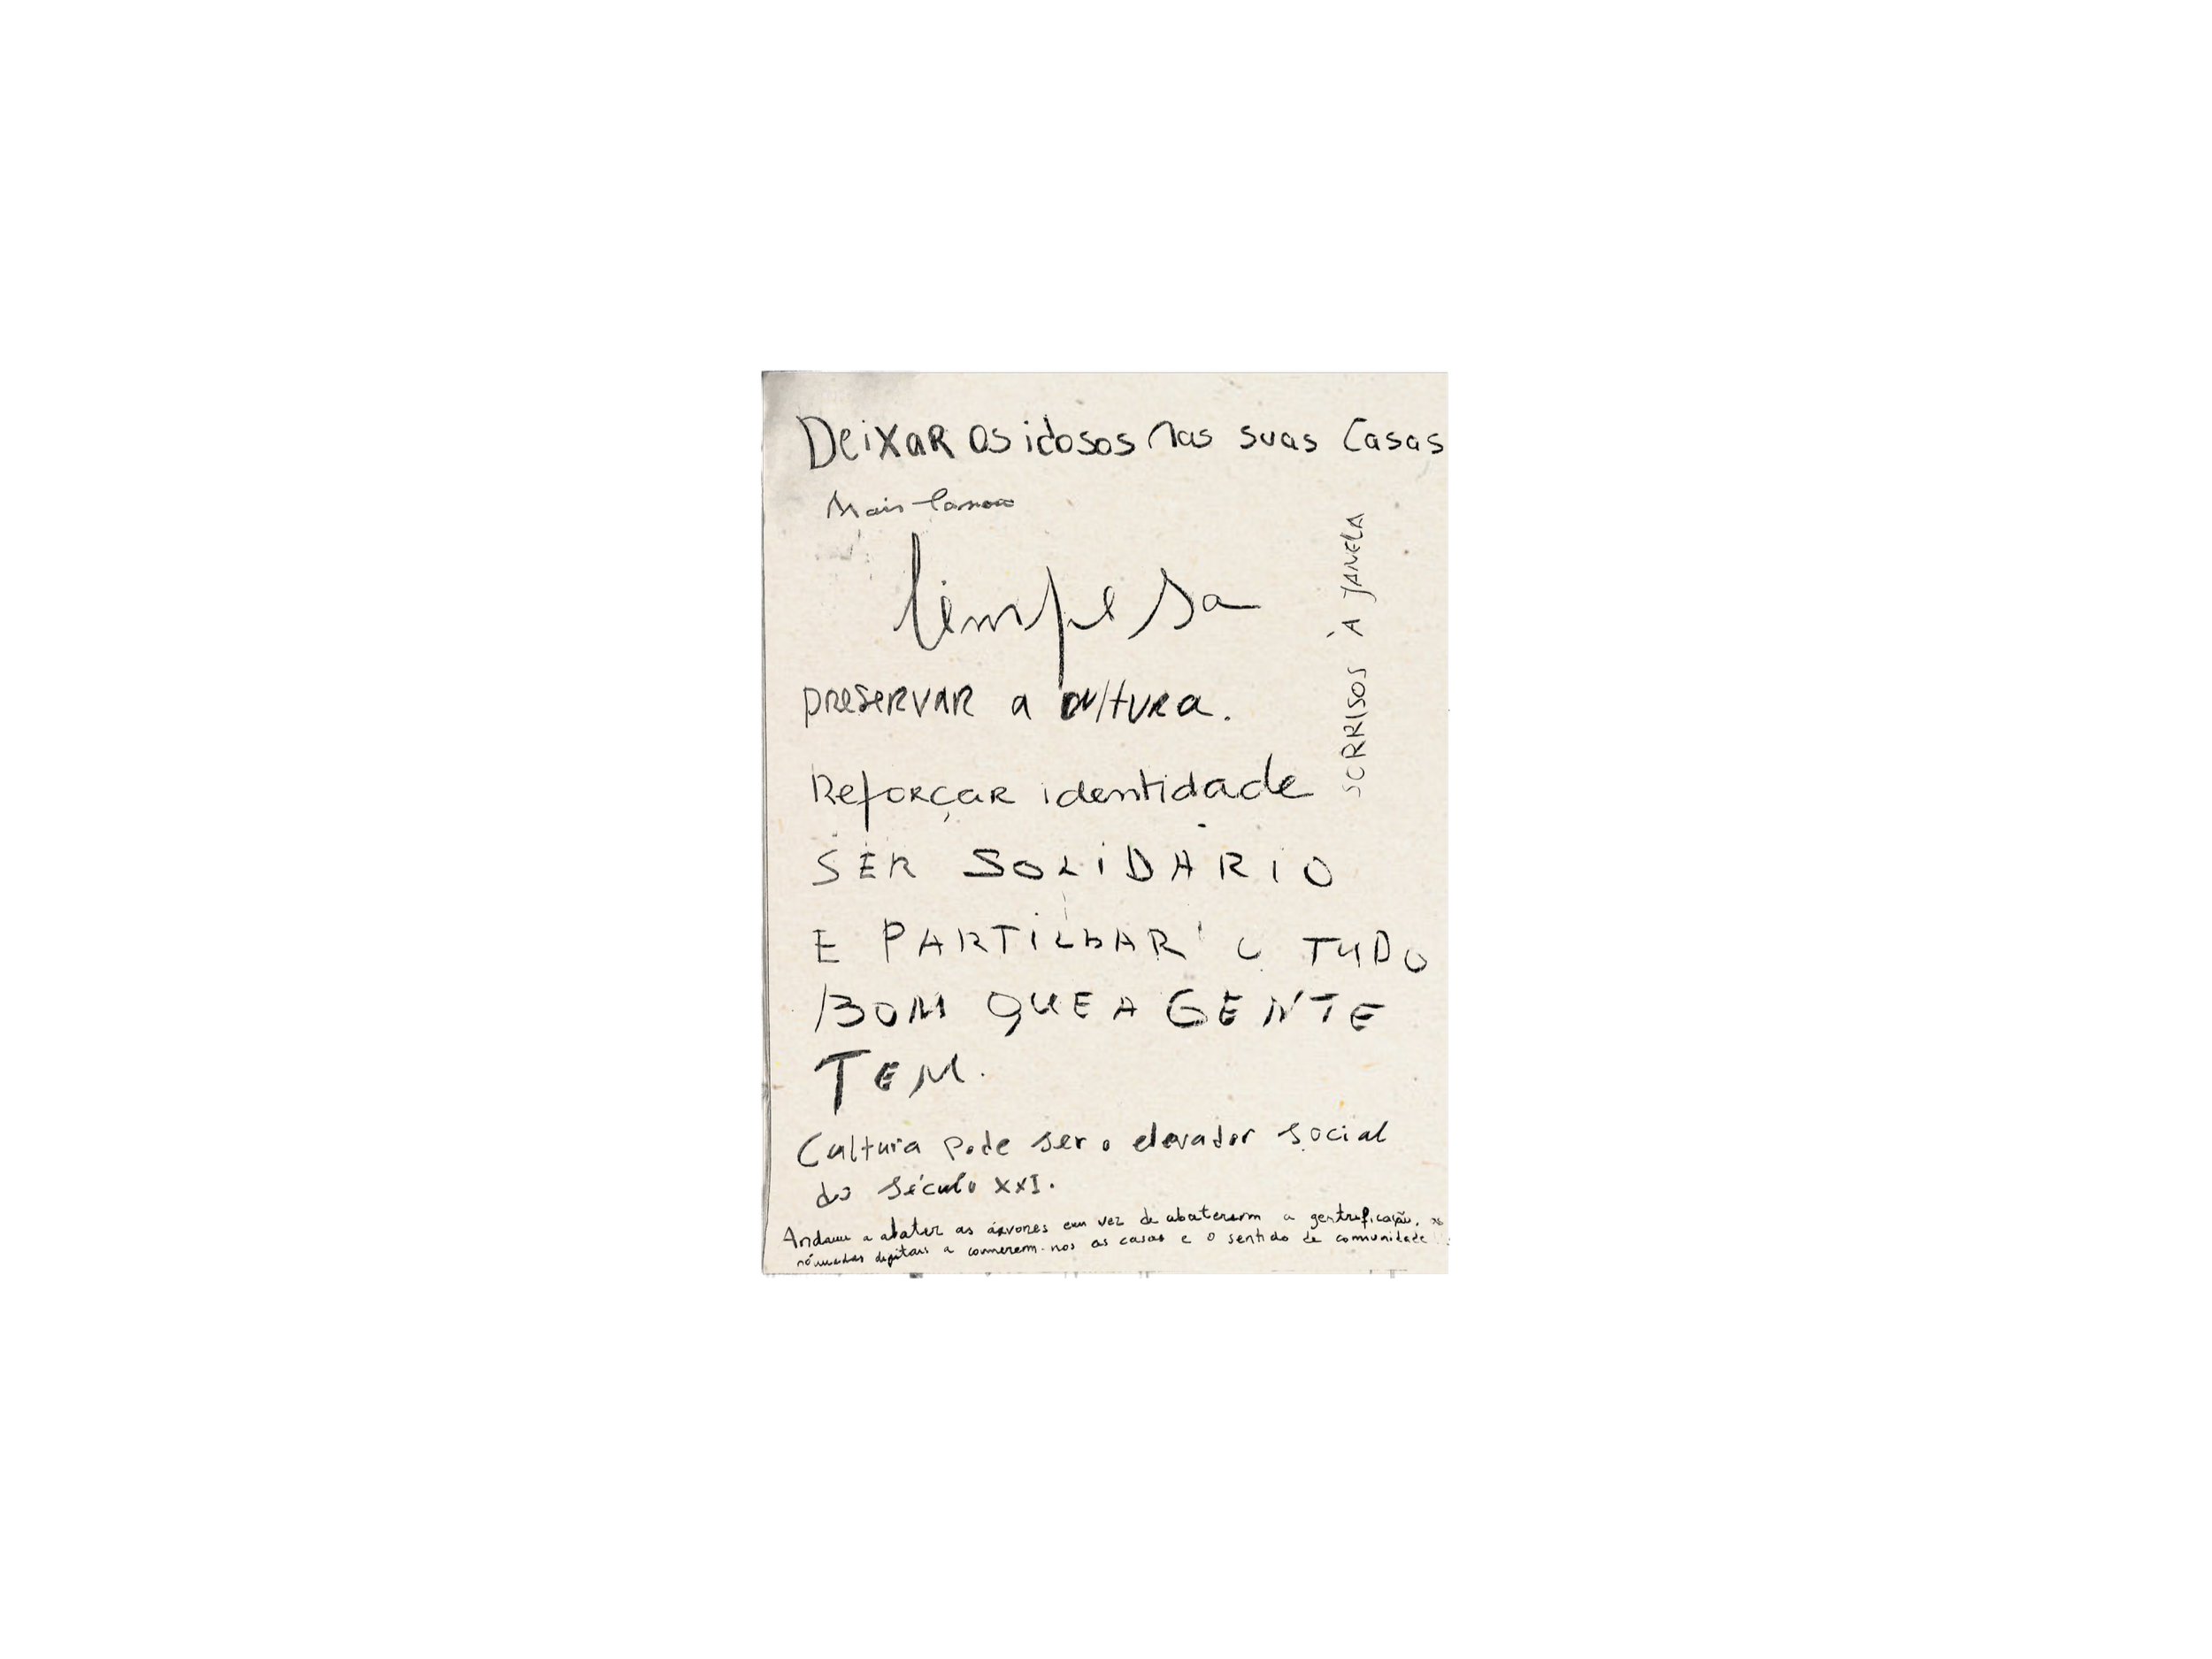 Deixar os idosos nas suas Casas
Mais
limpesa
preservar a cultura.
Reforçar identidade
SORRISOS À JANELA
SER SOLIDARIO
E PARTILHAR O TUDO
BOM QUE A GENTE
TEM.
Cultura pode ser o elevador social
do século XXI.
Andam a abater as árvores em vez de abaterem a gentrificação. os
nómadas digitais a comerem-nos as casas e o sentido de comunidade